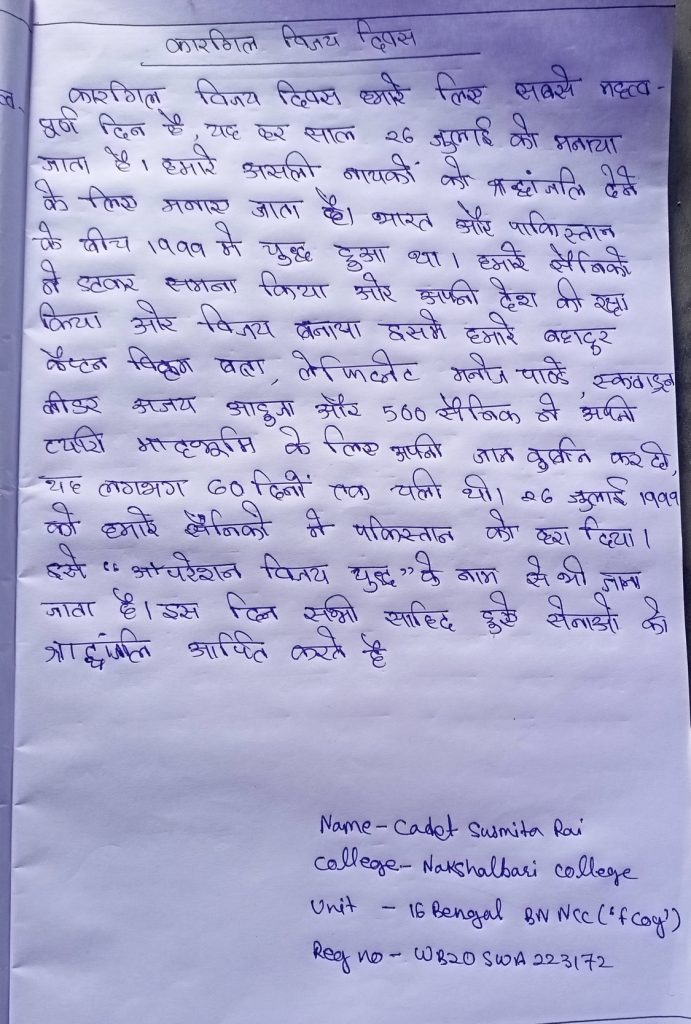 कारगिल विजय दिवस
कारगिल विजय दिवस हमारे लिए सबसे महत्व-
पूर्ण दिन है, यह हर साल २६ जुलाई को मनाया
जाता है। हमारे असली नायकों को श्राद्धांजलि देने
के लिए मनाए जाता है। भारत और पाकिस्तान
के बीच १९९९ मे युद्ध हुआ था। हमारे सैनिको
ने डटकर समना किया और अपनी देश की रक्षा
किया और विजय बनाया इसमे हमारे बहादुर
कैप्टन विक्रम बत्रा, लेफ्टिनेंट मनोज पांडे, स्कवाड्रन
लीडर अजय आहूजा और 500 सैनिक ने अपनी
त्यारी मातृभूमि के लिए अपनी जान कुर्बान कर दी,
यह लगभग 60 दिनों तक चली थी। २६ जुलाई १९९९
को हमारे सैनिको ने पकिस्तान को हरा दिया।
इसे "ओपरेशन विजय युद्ध" के नाम से भी जाना
जाता है। इस दिन सभी साहिद हुऐ सेनाओ को
श्राद्धांजलि आर्पित करते है
Name - Cadet Susmita Rai
College - Nakshalbari College
Unit - 16 Bengal BN NCC ('f coy')
Reg no - WB20SWA223172